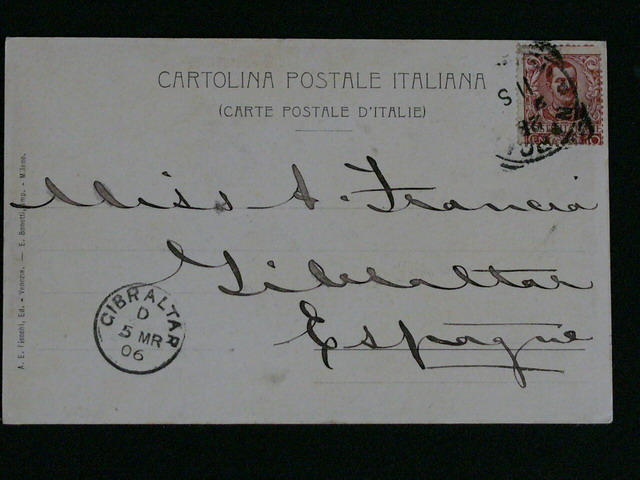 CARTOLINA POSTALE ITALIANA
(CARTE POSTALE D'ITALIE)
Miss A. Francia
Gibraltar
Espagne
GIBRALTAR
D
5 MR
06
A. E. Fiecchi, Ed. - Venezia. — E. Bonetti, Imp. - Milano.